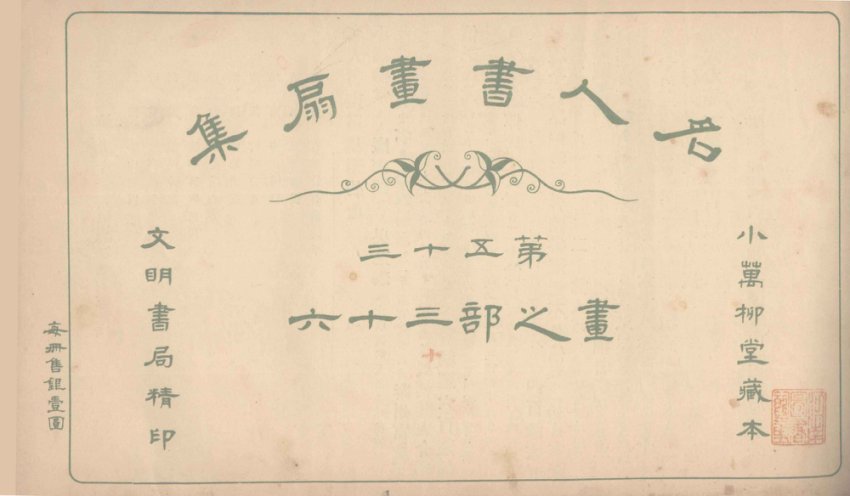 名人書畫扇集
第五十三
畫之部三十六
小萬柳堂藏本
文明書局精印
每冊售銀壹圓
十